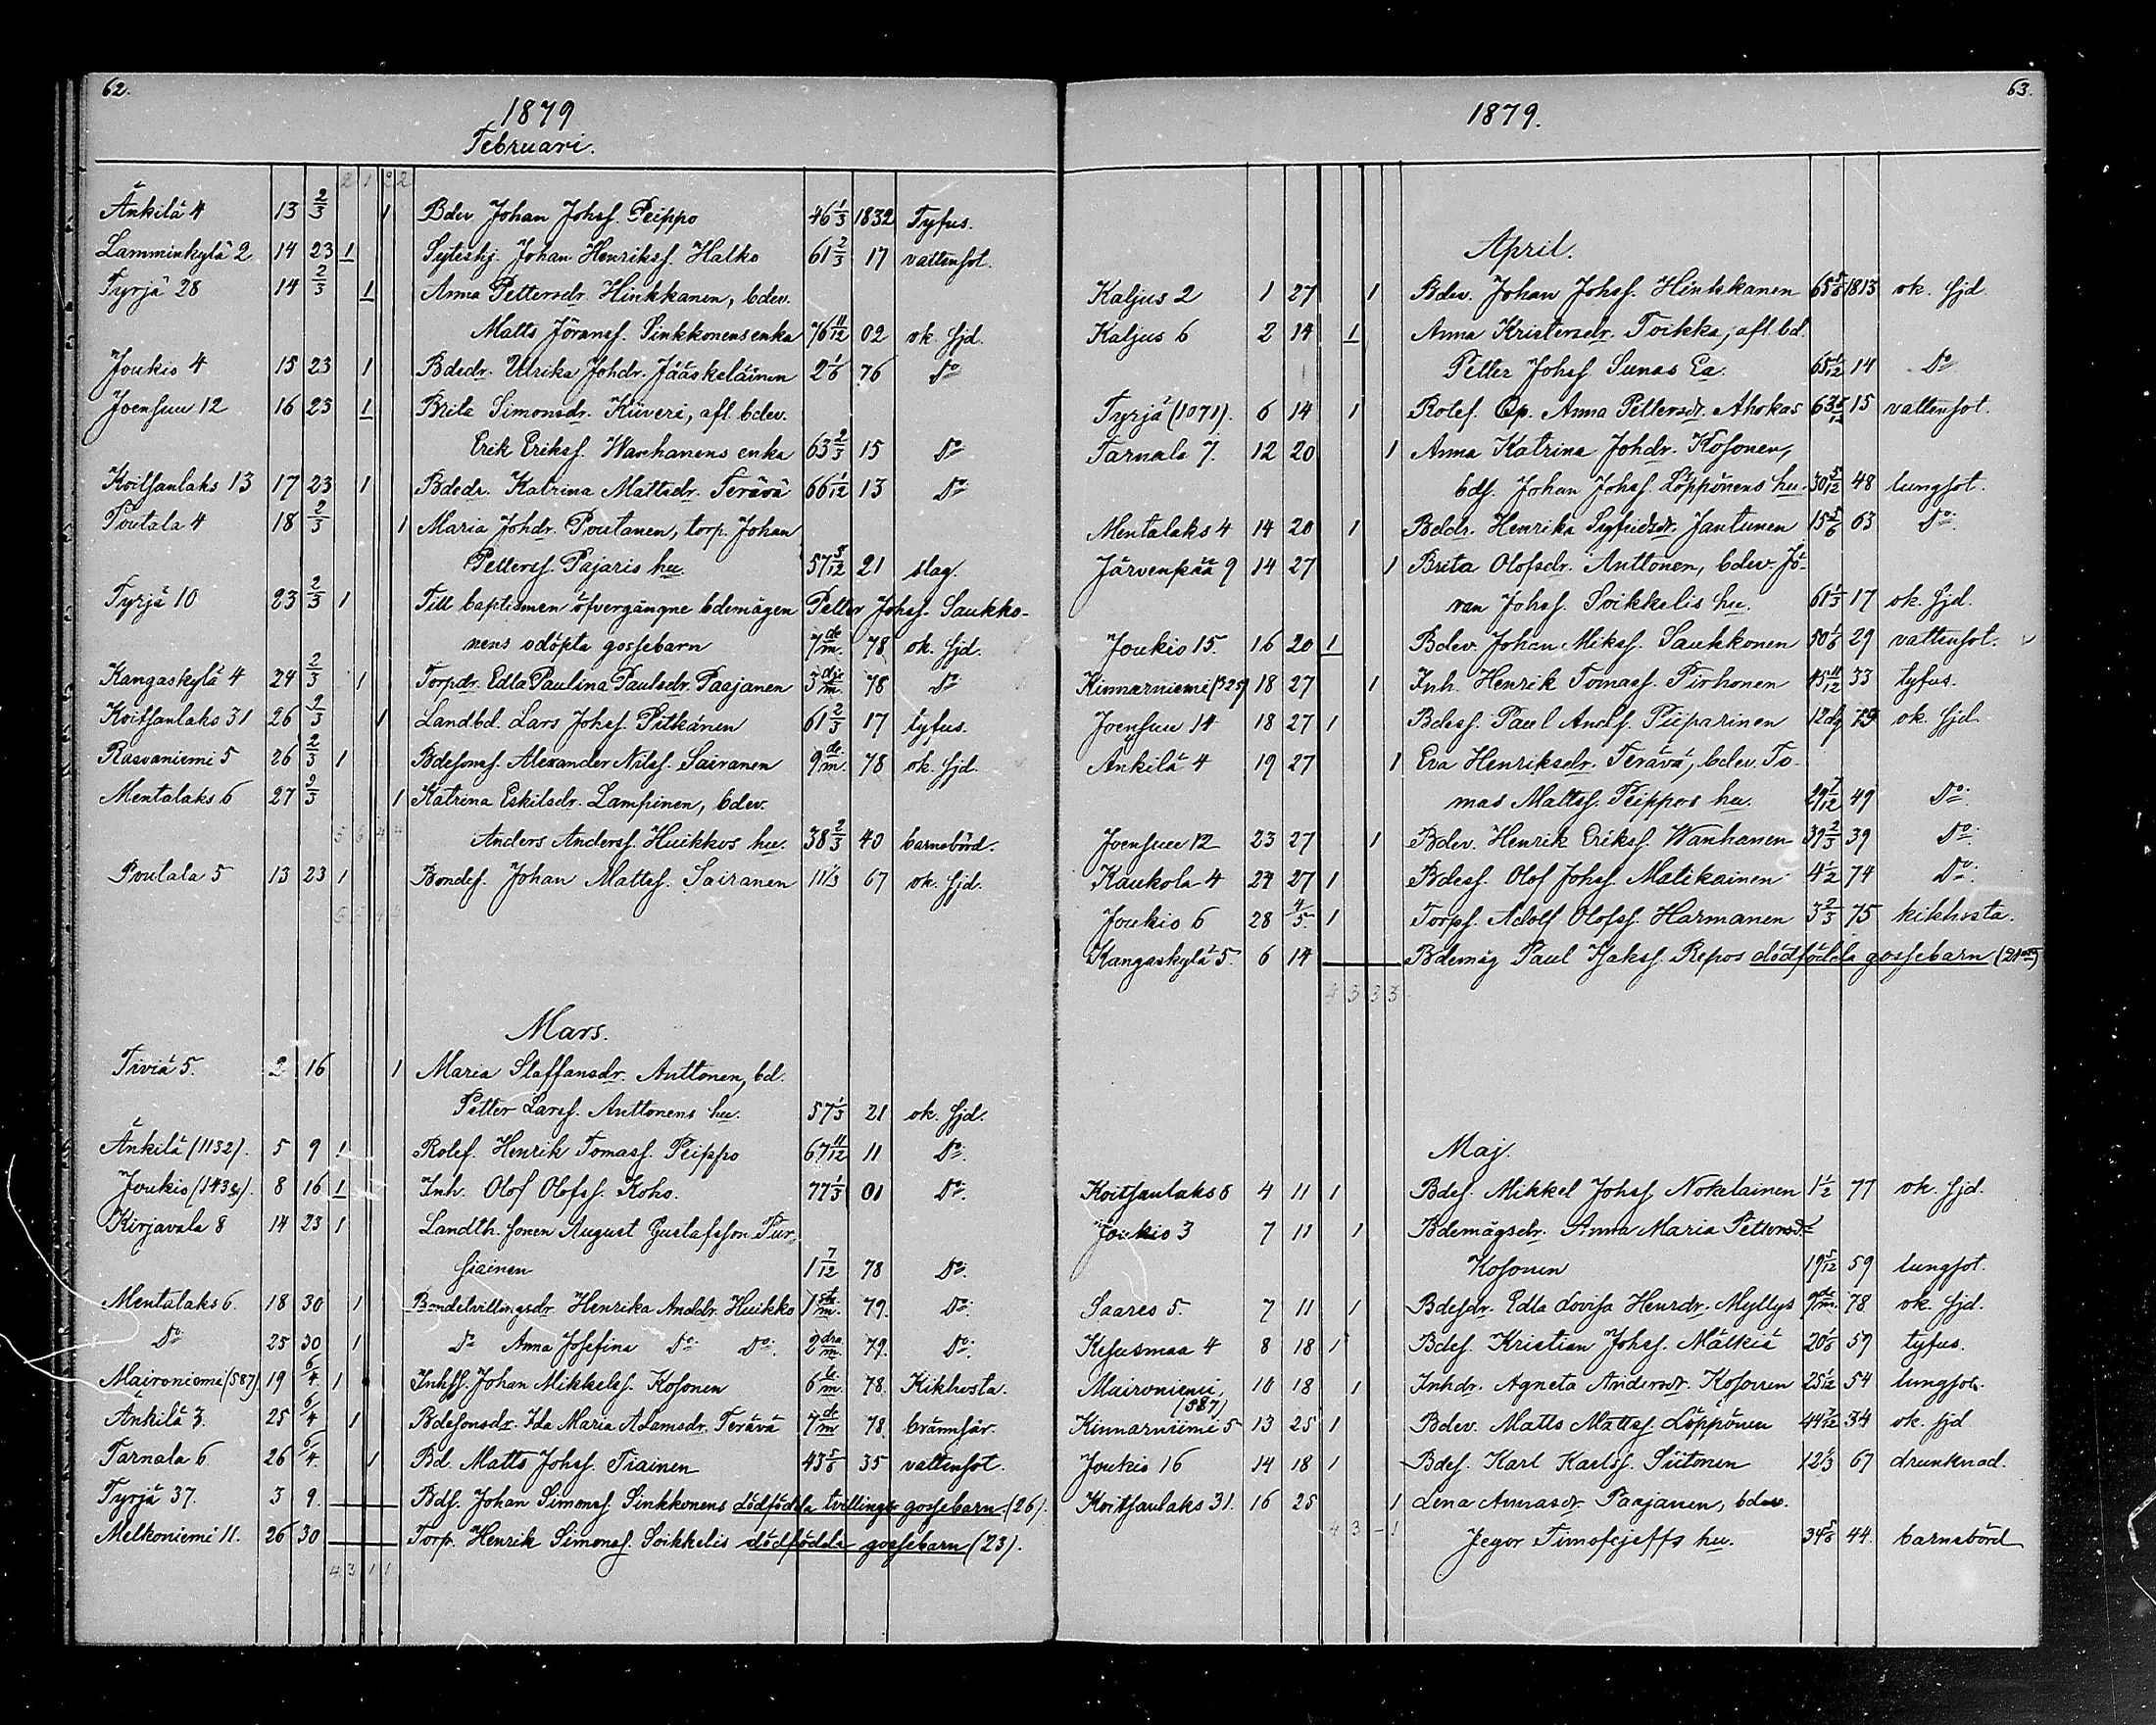 62.
1879
Februari.
2 1 2 2
Änkilä 4 13 2/3 1 Bdev. Johan Johsf. Peippo 46 1/3 1832 Tyfus.
Lamminkylä 2 14 23 1 Syteshj. Johan Henriksf. Halko 61 2/3 17 vattensot.
Tyrjä 28 14 2/3 1 Anna Pettersdr. Hinkkanen, bdev.
Matts Jöransf. Sinkkonens enka 76 11/12 02 ok. sjd.
Joukio 4 15 23 1 Bdedr. Ulrika Johdr. Jääskeläinen 2 1/6 76 Do
Joensuu 12 16 23 1 Brita Simonsdr. Kiiveri, afl. bdev.
Erik Eriksf. Wanhanens enka 63 2/3 15 Do
Koitsanlaks 13 17 23 1 Bdedr. Katrina Mattsdr. Terävä 66 1/12 13 Do
Poutala 4 18 2/3 1 Maria Johdr. Poutanen, torp. Johan
Pettersf. Pajaris hu 57 5/12 21 slag.
Tyrjä 10 23 2/3 1 Till baptismen öfvergångne bdemågen Petter Johsf. Saukko-
nens odöpta gossebarn 7 de m. 78 ok. sjd.
Kangaskylä 4 24 2/3 1 Torpdr. Edla Paulina Paulsdr. Paajanen 3 dje m. 78 Do
Koitsanlaks 31 26 2/3 1 Landbd. Lars Johsf. Pitkänen 61 2/3 17 tyfus.
Rasvaniemi 5 26 2/3 1 Bdesonsf. Alexander Nilsf. Sairanen 9 de m. 78 ok. sjd.
Mentalaks 6 27 2/3 1 Katrina Eskilsdr. Lampinen, bdev.
5 6 4 4 Anders Andersf. Huikkos hu. 38 2/3 40 barnsbörd.
Poutala 5 13 23 1 Bondes. Johan Mattsf. Sairanen 11 1/3 67 ok. sjd.
6 6 4 4
Mars.
Tiviä 5. 2 16 1 Maria Staffansdr. Anttonen, bd.
Petter Larsf. Anttonens hu. 57 1/3 21 ok. sjd.
Änkilä (1132). 5 9 1 Rotef. Henrik Tomasf. Peippo 67 11/12 11 Do.
Joukio (143). 8 16 1 Inh. Olof Olofsf. Koho. 77 1/3 01 Do.
Kirjavala 8 14 23 1 Landth. sonen August Gustafsson Pur-
siainen 1 7/12 78 Do.
Mentalaks 6. 18 30 1 Bondetvillingsdr. Henrika Anddr. Huikko 1 sta m. 79. Do.
Do 25 30 1 Do Anna Josefina Do Do. 2 dra m. 79. Do.
Maironiemi (587) 19 6/4 1 Inhsf. Johan Mikkelsf. Kosonen 6 te m. 78. Kikhosta.
Änkilä 3. 25 6/4 1 Bdesonsdr. Ida Maria Adamsdr. Terävä 7 de m 78. brännsår.
Tarnala 6. 26 6/4. 1 Bd. Matts Johsf. Tiainen 43 5/6 35 vattensot.
Tyrjä 37. 3 9. Bdf. Johan Simonsf. Sinkkonens dödfödda tvillings gossebarn (26).
Melkoniemi 11. 26 30 Torp. Henrik Simonsf. Soikkelis dödfödda gossebarn (23).
4 3 1 1
63.
1879.
April.
Kaljus 2 1 27 1 Bdev. Johan Johsf. Hinkkanen 65 5/6 1813 ok. sjd.
Kaljus 6 2 14 1 Anna Kristersdr. Toikka, afl. bd.
Petter Johsf Sunas Ea. 65 1/12 14 Do
Tyrjä (1071). 6 14 1 Rotef. Qp. Anna Pettersdr. Ahokas 63 5/12 15 vattensot.
Tarnala 7. 12 20 1 Anna Katrina Johdr. Kosonen,
bdf. Johan Johsf. Löppönens hu. 30 5/12 48 lungsot.
Mentalaks 4 14 20 1 Bddr. Henrika Sigfridsdr. Jantunen 15 5/6 63 Do.
Järvenpää 9 14 27 1 Brita Olofsdr. Anttonen, bdev. Jö-
ran Johsf. Soikkelis hu. 61 1/3 17 ok. sjd.
Joukio 15. 16 20 1 Bdev. Johan Miksf. Saukkonen 50 1/6 29 vattensot.
Kinnarniemi (325) 18 27 1 Inh. Henrik Tomasf. Pirhonen 45 11/12 33 tyfus.
Joensuu 14 18 27 1 Bdesf. Paul Andsf. Piiparinen 12 dg 79 ok. sjd.
Änkilä 4 19 27 1 Eva Henriksdr. Terävä, bdev. To-
mas Mattsf. Peippos hu. 29 7/12 49 Do.
Joensuu 12 23 27 1 Bdev. Henrik Eriksf. Wanhanen 39 2/3 39 Do.
Kaukola 4 24 27 1 Bdesf. Olof Johsf. Matikainen 4 1/2 74 Do.
Joukio 6 28 4/5. 1 Torpf. Adolf Olofsf. Harmanen 3 2/3 75 kikhosta.
Kangaskylä 5. 6 14 Bdemåg Paul Isaksf. Repos dödfödda gossebarn (21)
4 3 3 3
Maj.
Koitsanlaks 6 4 11 1 Bdef. Mikkel Johsf Nokelainen 1 1/2 77 ok. sjd.
Joukio 3 7 11 1 Bdemågsdr. Anna Maria Pettersdr
Kosonen 19 5/12 59 lungsot.
Saares 5. 7 11 1 Bdesdr. Edla Lovisa Henrdr. Myllys 9 de m. 78 ok. sjd.
Kesusmaa 4 8 18 1 Bdef. Kristian Johsf. Mälkiä 20 1/6 59 tyfus.
Maironiemi, (587) 10 18 1 Inhdr. Agneta Andersdr. Kosonen 25 1/12 54 lungsot.
Kinnarniemi 5 13 25 1 Bdev. Matts Mattsf Löppönen 44 7/12 34 ok. sjd
Joukio 16 14 18 1 Bdef. Karl Karlsf. Siitonen 12 1/3 67 drunknad.
Koitsanlaks 31. 16 25 1 Lena Annasdr Paajanen, bdev.
4 3 - 1 Jegor Timofejeffs hu. 34 5/6 44. barnsbörd